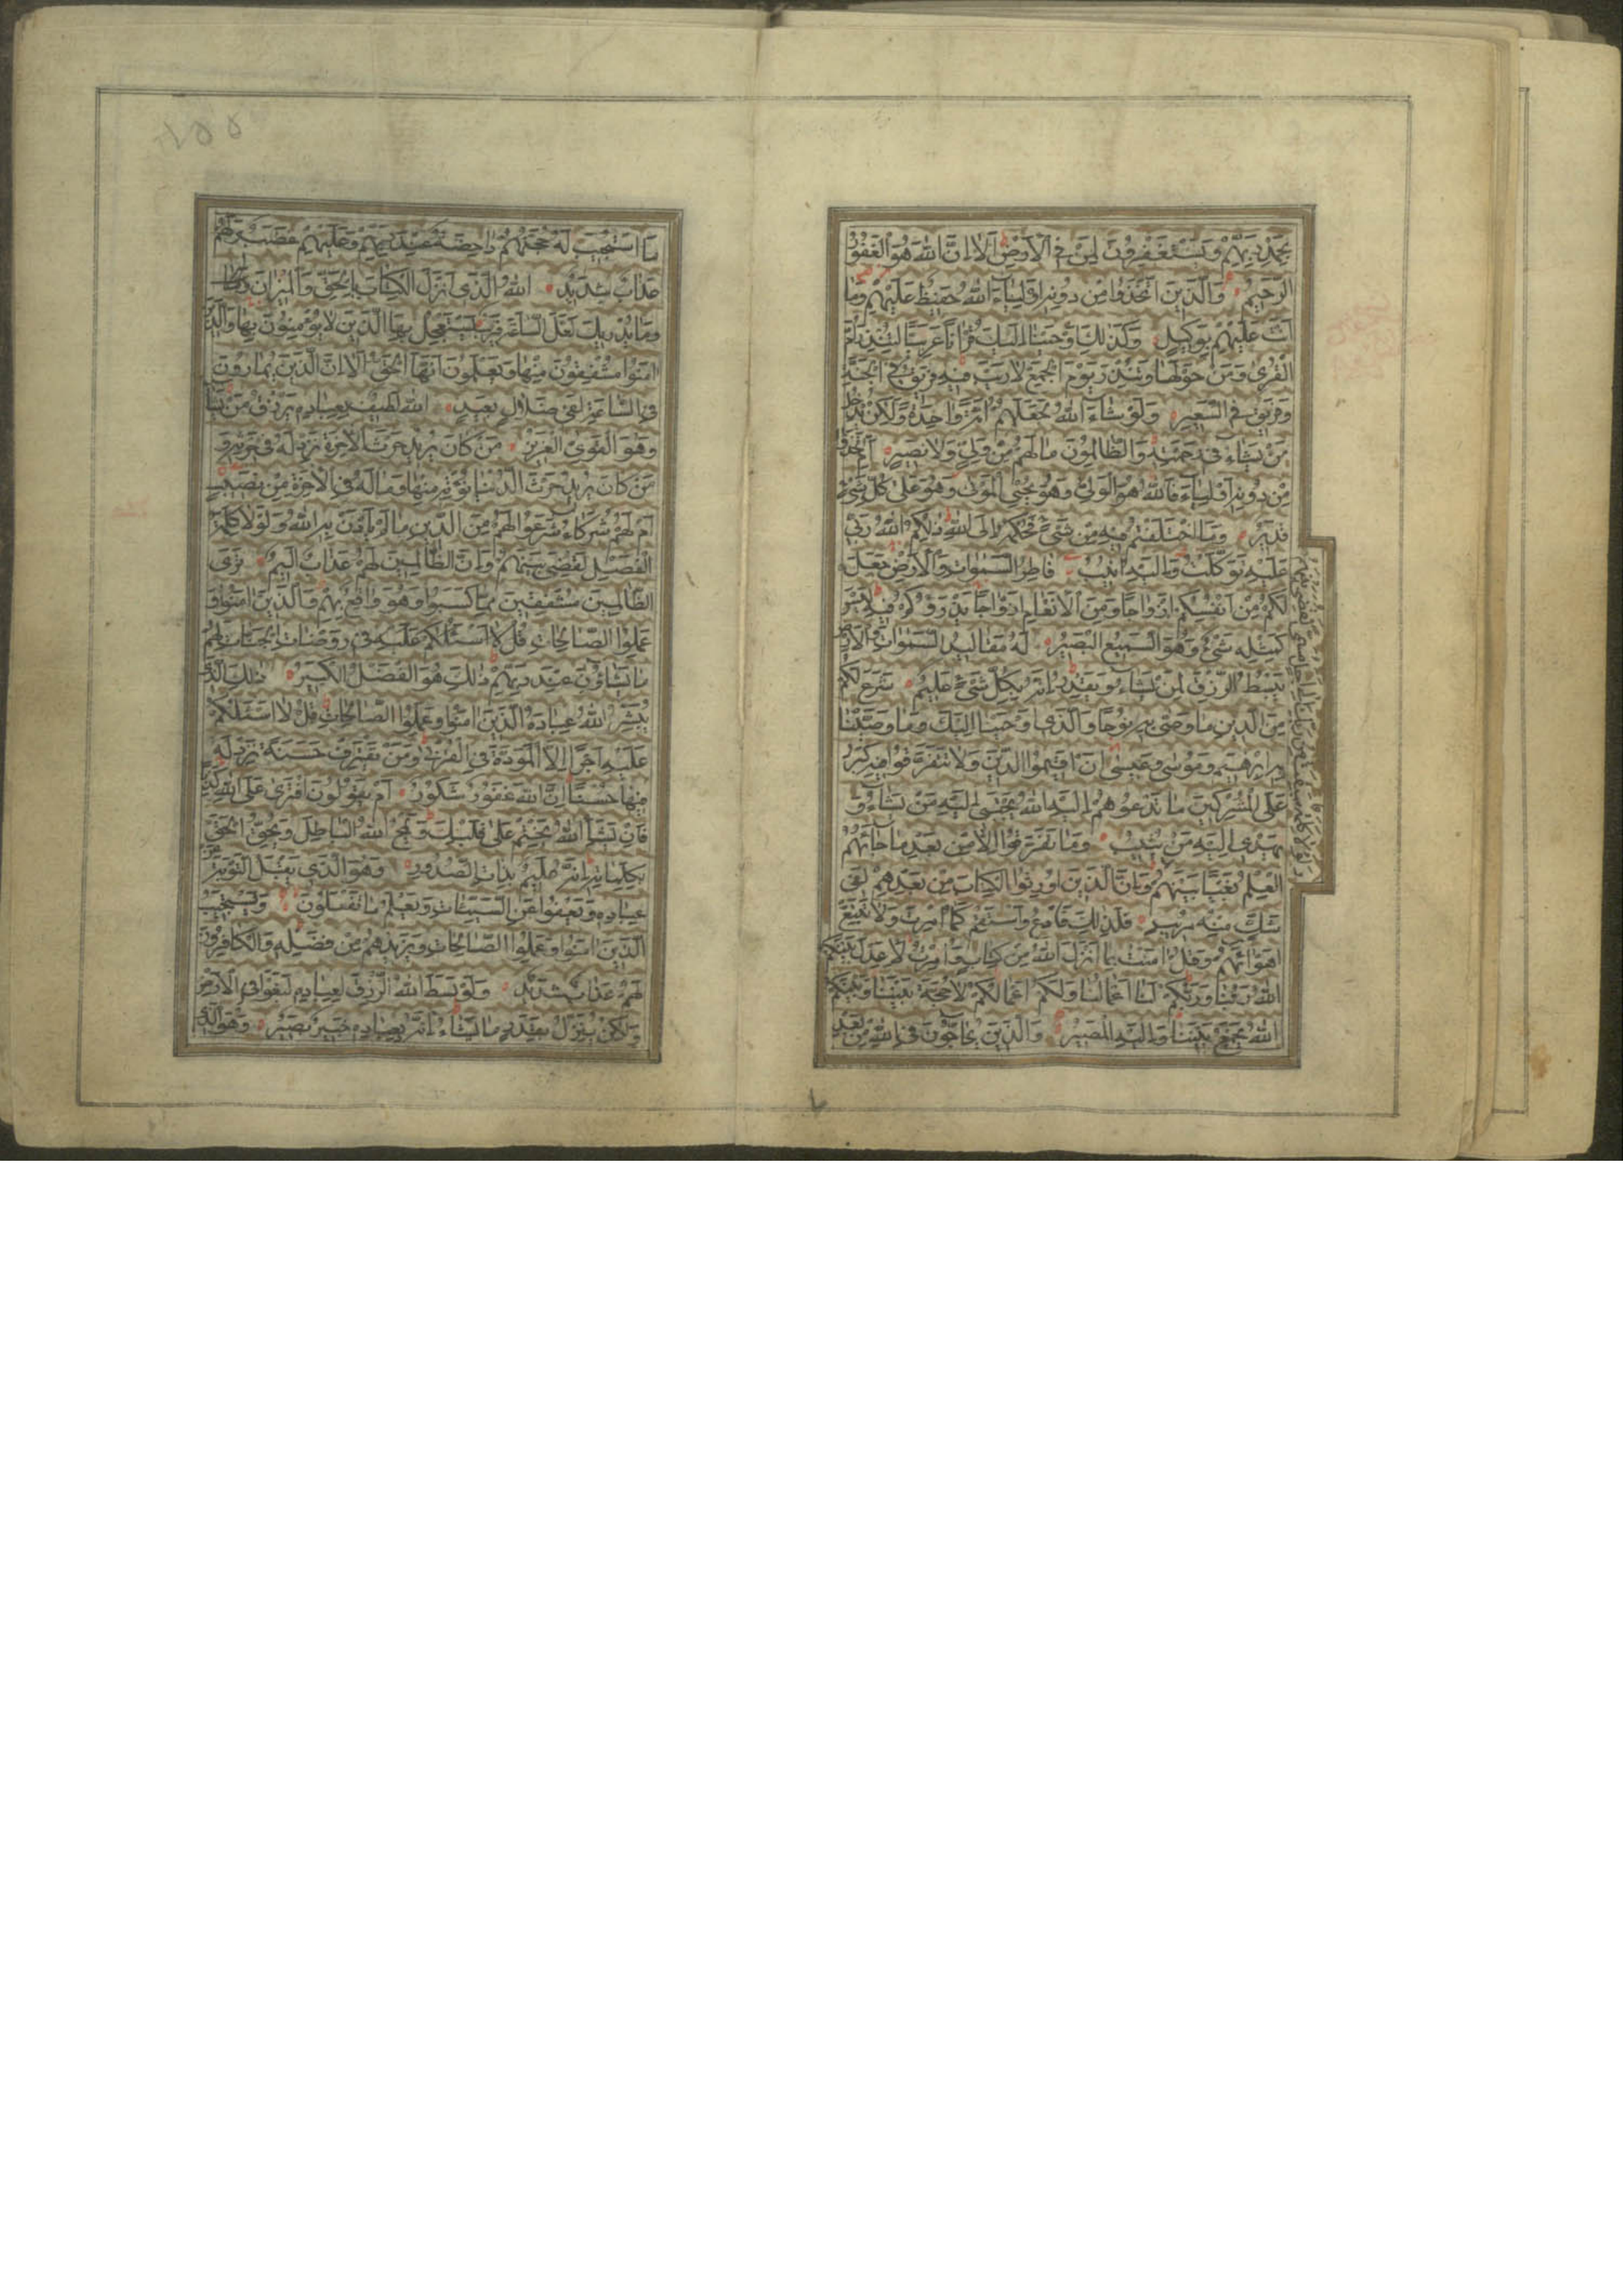 بِحَمْدِ رَبِّهِمْ وَيَسْتَغْفِرُونَ لِمَنْ فِي الْأَرْضِ أَلَا إِنَّ اللَّهَ هُوَ الْغَفُورُ
الرَّحِيمُ وَالَّذِينَ اتَّخَذُوا مِنْ دُونِهِ أَوْلِيَاءَ اللَّهُ حَفِيظٌ عَلَيْهِمْ وَمَا
أَنْتَ عَلَيْهِمْ بِوَكِيلٍ وَكَذَلِكَ أَوْحَيْنَا إِلَيْكَ قُرْآنًا عَرَبِيًّا لِتُنْذِرَ أُمَّ
الْقُرَى وَمَنْ حَوْلَهَا وَتُنْذِرَ يَوْمَ الْجَمْعِ لَا رَيْبَ فِيهِ فَرِيقٌ فِي الْجَنَّةِ
وَفَرِيقٌ فِي السَّعِيرِ وَلَوْ شَاءَ اللَّهُ لَجَعَلَهُمْ أُمَّةً وَاحِدَةً وَلَكِنْ يُدْخِلُ
مَنْ يَشَاءُ فِي رَحْمَتِهِ وَالظَّالِمُونَ مَا لَهُمْ مِنْ وَلِيٍّ وَلَا نَصِيرٍ أَمِ اتَّخَذُوا
مِنْ دُونِهِ أَوْلِيَاءَ فَاللَّهُ هُوَ الْوَلِيُّ وَهُوَ يُحْيِي الْمَوْتَى وَهُوَ عَلَى كُلِّ شَيْءٍ
قَدِيرٌ وَمَا اخْتَلَفْتُمْ فِيهِ مِنْ شَيْءٍ فَحُكْمُهُ إِلَى اللَّهِ ذَلِكُمُ اللَّهُ رَبِّي
عَلَيْهِ تَوَكَّلْتُ وَإِلَيْهِ أُنِيبُ فَاطِرُ السَّمَوَاتِ وَالْأَرْضِ جَعَلَ
لَكُمْ مِنْ أَنْفُسِكُمْ أَزْوَاجًا وَمِنَ الْأَنْعَامِ أَزْوَاجًا يَذْرَؤُكُمْ فِيهِ لَيْسَ
كَمِثْلِهِ شَيْءٌ وَهُوَ السَّمِيعُ الْبَصِيرُ لَهُ مَقَالِيدُ السَّمَوَاتِ وَالْأَرْضِ
يَبْسُطُ الرِّزْقَ لِمَنْ يَشَاءُ وَيَقْدِرُ إِنَّهُ بِكُلِّ شَيْءٍ عَلِيمٌ شَرَعَ لَكُمْ
مِنَ الدِّينِ مَا وَصَّى بِهِ نُوحًا وَالَّذِي أَوْحَيْنَا إِلَيْكَ وَمَا وَصَّيْنَا
بِهِ إِبْرَهِيمَ وَمُوسَى وَعِيسَى أَنْ أَقِيمُوا الدِّينَ وَلَا تَتَفَرَّقُوا فِيهِ كَبُرَ
عَلَى الْمُشْرِكِينَ مَا تَدْعُوهُمْ إِلَيْهِ اللَّهُ يَجْتَبِي إِلَيْهِ مَنْ يَشَاءُ وَ
يَهْدِي إِلَيْهِ مَنْ يُنِيبُ وَمَا تَفَرَّقُوا إِلَّا مِنْ بَعْدِ مَا جَاءَهُمُ
الْعِلْمُ بَغْيًا بَيْنَهُمْ وَإِنَّ الَّذِينَ أُورِثُوا الْكِتَابَ مِنْ بَعْدِهِمْ لَفِي
شَكٍّ مِنْهُ مُرِيبٍ فَلِذَلِكَ فَادْعُ وَاسْتَقِمْ كَمَا أُمِرْتَ وَلَا تَتَّبِعْ
أَهْوَاءَهُمْ وَقُلْ آمَنْتُ بِمَا أَنْزَلَ اللَّهُ مِنْ كِتَابٍ وَأُمِرْتُ لِأَعْدِلَ بَيْنَكُمُ
اللَّهُ رَبُّنَا وَرَبُّكُمْ لَنَا أَعْمَالُنَا وَلَكُمْ أَعْمَالُكُمْ لَا حُجَّةَ بَيْنَنَا وَبَيْنَكُمُ
اللَّهُ يَجْمَعُ بَيْنَنَا وَإِلَيْهِ الْمَصِيرُ وَالَّذِينَ يُحَاجُّونَ فِي اللَّهِ مِنْ بَعْدِ
وَلَوْلَا كَلِمَةٌ سَبَقَتْ مِنْ رَبِّكَ إِلَى أَجَلٍ مُسَمًّى لَقُضِيَ بَيْنَهُمْ
مَا اسْتُجِيبَ لَهُ حُجَّتُهُمْ دَاحِضَةٌ عِنْدَ رَبِّهِمْ وَعَلَيْهِمْ غَضَبٌ وَلَهُمْ
عَذَابٌ شَدِيدٌ اللَّهُ الَّذِي أَنْزَلَ الْكِتَابَ بِالْحَقِّ وَالْمِيزَانَ
وَمَا يُدْرِيكَ لَعَلَّ السَّاعَةَ قَرِيبٌ يَسْتَعْجِلُ بِهَا الَّذِينَ لَا يُؤْمِنُونَ بِهَا وَالَّذِينَ
آمَنُوا مُشْفِقُونَ مِنْهَا وَيَعْلَمُونَ أَنَّهَا الْحَقُّ أَلَا إِنَّ الَّذِينَ يُمَارُونَ
فِي السَّاعَةِ لَفِي ضَلَالٍ بَعِيدٍ اللَّهُ لَطِيفٌ بِعِبَادِهِ يَرْزُقُ مَنْ يَشَاءُ
وَهُوَ الْقَوِيُّ الْعَزِيزُ مَنْ كَانَ يُرِيدُ حَرْثَ الْآخِرَةِ نَزِدْ لَهُ فِي حَرْثِهِ وَ
مَنْ كَانَ يُرِيدُ حَرْثَ الدُّنْيَا نُؤْتِهِ مِنْهَا وَمَا لَهُ فِي الْآخِرَةِ مِنْ نَصِيبٍ
أَمْ لَهُمْ شُرَكَاءُ شَرَعُوا لَهُمْ مِنَ الدِّينِ مَا لَمْ يَأْذَنْ بِهِ اللَّهُ وَلَوْلَا كَلِمَةُ
الْفَصْلِ لَقُضِيَ بَيْنَهُمْ وَإِنَّ الظَّالِمِينَ لَهُمْ عَذَابٌ أَلِيمٌ تَرَى
الظَّالِمِينَ مُشْفِقِينَ مِمَّا كَسَبُوا وَهُوَ وَاقِعٌ بِهِمْ وَالَّذِينَ آمَنُوا وَ
عَمِلُوا الصَّالِحَاتِ فِي رَوْضَاتِ الْجَنَّاتِ لَهُمْ
مَا يَشَاؤُنَ عِنْدَ رَبِّهِمْ ذَلِكَ هُوَ الْفَضْلُ الْكَبِيرُ ذَلِكَ الَّذِي
يُبَشِّرُ اللَّهُ عِبَادَهُ الَّذِينَ آمَنُوا وَعَمِلُوا الصَّالِحَاتِ قُلْ لَا أَسْئَلُكُمْ
عَلَيْهِ أَجْرًا إِلَّا الْمَوَدَّةَ فِي الْقُرْبَى وَمَنْ يَقْتَرِفْ حَسَنَةً نَزِدْ لَهُ
فِيهَا حُسْنًا إِنَّ اللَّهَ غَفُورٌ شَكُورٌ أَمْ يَقُولُونَ افْتَرَى عَلَى اللَّهِ كَذِبًا
فَإِنْ يَشَأِ اللَّهُ يَخْتِمْ عَلَى قَلْبِكَ وَيَمْحُ اللَّهُ الْبَاطِلَ وَيُحِقُّ الْحَقَّ
بِكَلِمَاتِهِ إِنَّهُ عَلِيمٌ بِذَاتِ الصُّدُورِ وَهُوَ الَّذِي يَقْبَلُ التَّوْبَةَ عَنْ
عِبَادِهِ وَيَعْفُوا عَنِ السَّيِّئَاتِ وَيَعْلَمُ مَا تَفْعَلُونَ وَيَسْتَجِيبُ
الَّذِينَ آمَنُوا وَعَمِلُوا الصَّالِحَاتِ وَيَزِيدُهُمْ مِنْ فَضْلِهِ وَالْكَافِرُونَ
لَهُمْ عَذَابٌ شَدِيدٌ وَلَوْ بَسَطَ اللَّهُ الرِّزْقَ لِعِبَادِهِ لَبَغَوْا فِي الْأَرْضِ
وَلَكِنْ يُنَزِّلُ بِقَدَرٍ مَا يَشَاءُ إِنَّهُ بِعِبَادِهِ خَبِيرٌ بَصِيرٌ وَهُوَ الَّذِي